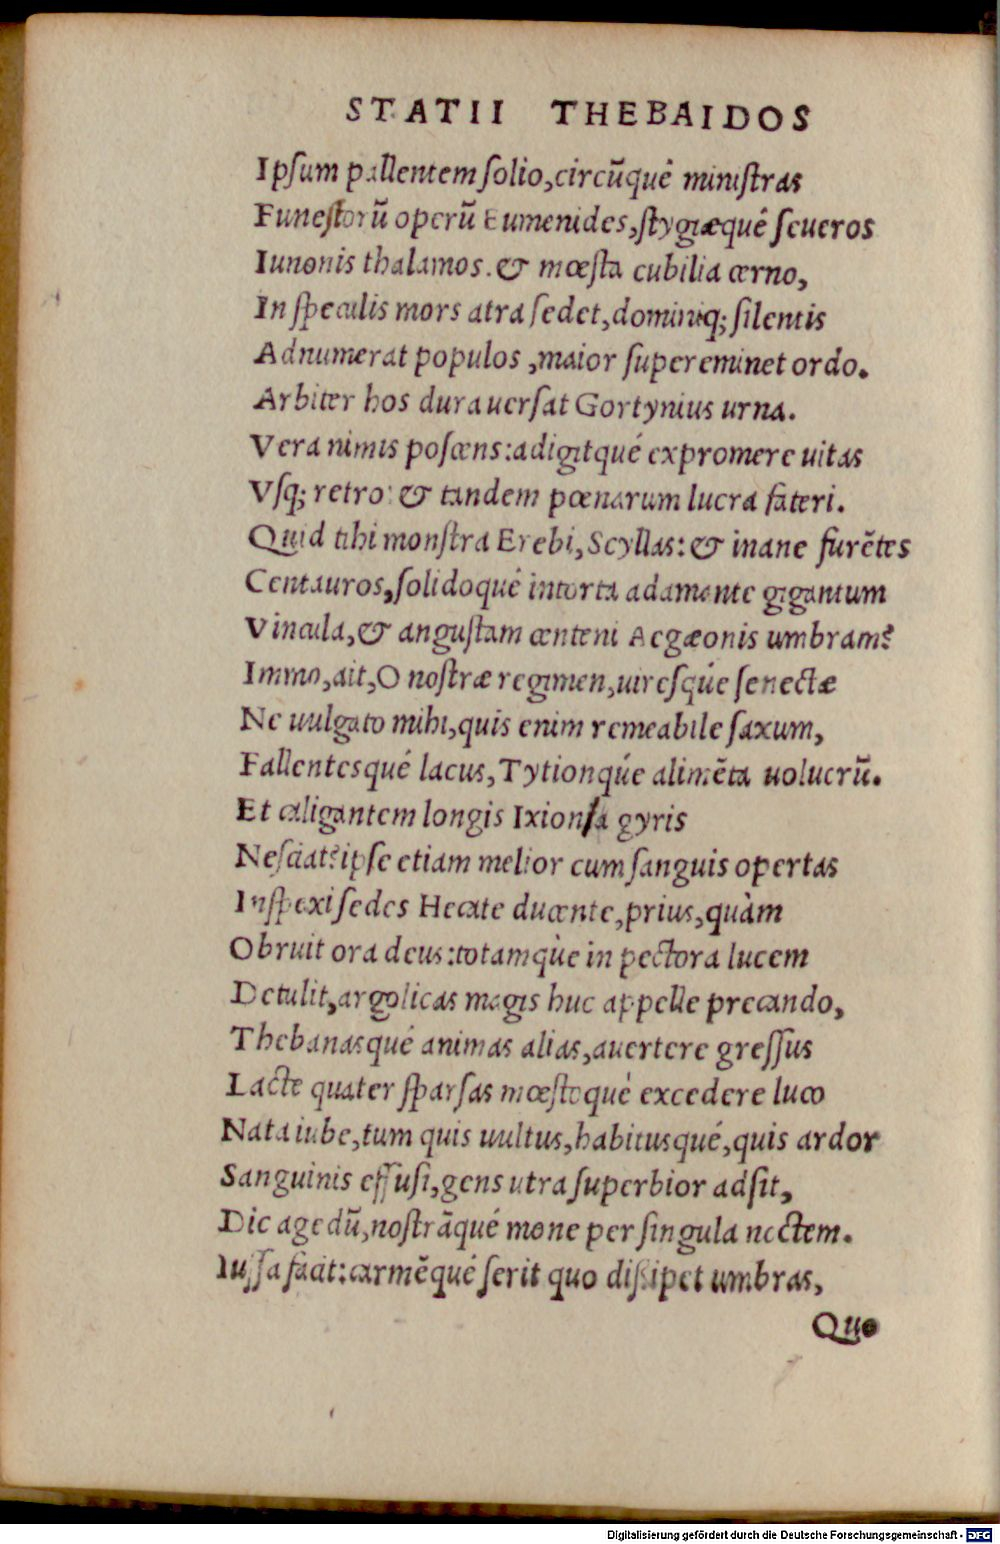 STATII THEBAIDOS
Ipsum pallentem solio,circũqué ministras
Funestorũ operũ Eumenides,stygiæqué seueros
Iunonis thalamos.& mœsta cubilia cerno,
In speculis mors atra sedet,dominiq; silentis
Adnumerat populos ,maior supereminet ordo.
Arbiter hos dura uersat Gortynius urna.
Vera nimis poscens:adigitqué expromere uitas
Vsq; retro: & tandem pœnarum lucra fateri.
Quid tibi monstra Erebi,Scyllas:& inane furẽtes
Centauros,solidoqué intorta adamante gigantum
Vincula,& angustam centeni Aegæonis umbram?
Immo,ait,O nostræ regimen,uiresqúe senectæ
Ne uulgato mihi,quis enim remeabile saxum,
Fallentesqué lacus,Tytionqúe alimẽta uolucrũ.
Et caligantem longis Ixiona gyris
Nesciat?ipse etiam melior cum sanguis opertas
Inspexi sedes Hecate ducente,prius,quàm
Obruit ora deus:totamqùe in pectora lucem
Detulit,argolicas magis huc appelle precando,
Thebanasqué animas alias,auertere gressus
Lacte quater sparsas mœstoquè excedere luco
Nata iube,tum quis uultus,habitusqué,quis ardor
Sanguinis effusi,gens utra superbior adsit,
Dic agedũ,nostrãqué mone per singula noctem.
Iussa facit:carmẽqué serit quo dissipet umbras,
Quo
Digitalisierung gefördert durch die Deutsche Forschungsgemeinschaft - DFG